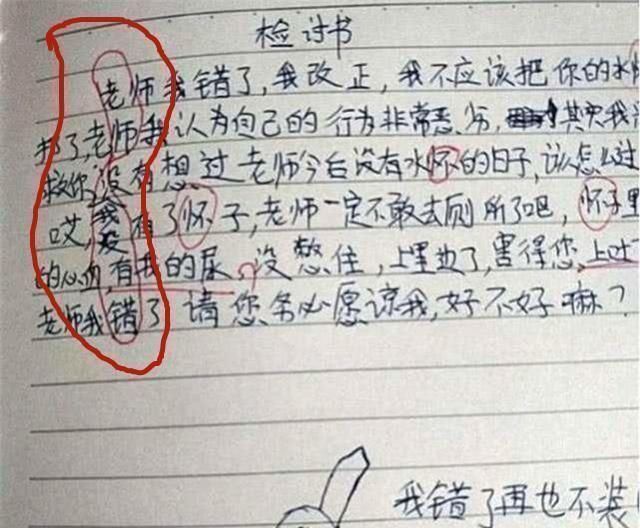 检讨书
老师我错了,我改正,我不应该把你的水
了,老师我认为自己的行为非常恶劣,其实我
救你,没有想过老师今后没有水怀的日子,该怎么
哎,我没有了怀子,老师一定不敢去厕所了吧,怀子里
的心血,有我的尿,没憋住,上里边了,害得您,上吐
老师我错了 请您务必愿谅我,好不好嘛?
我错了再也不装